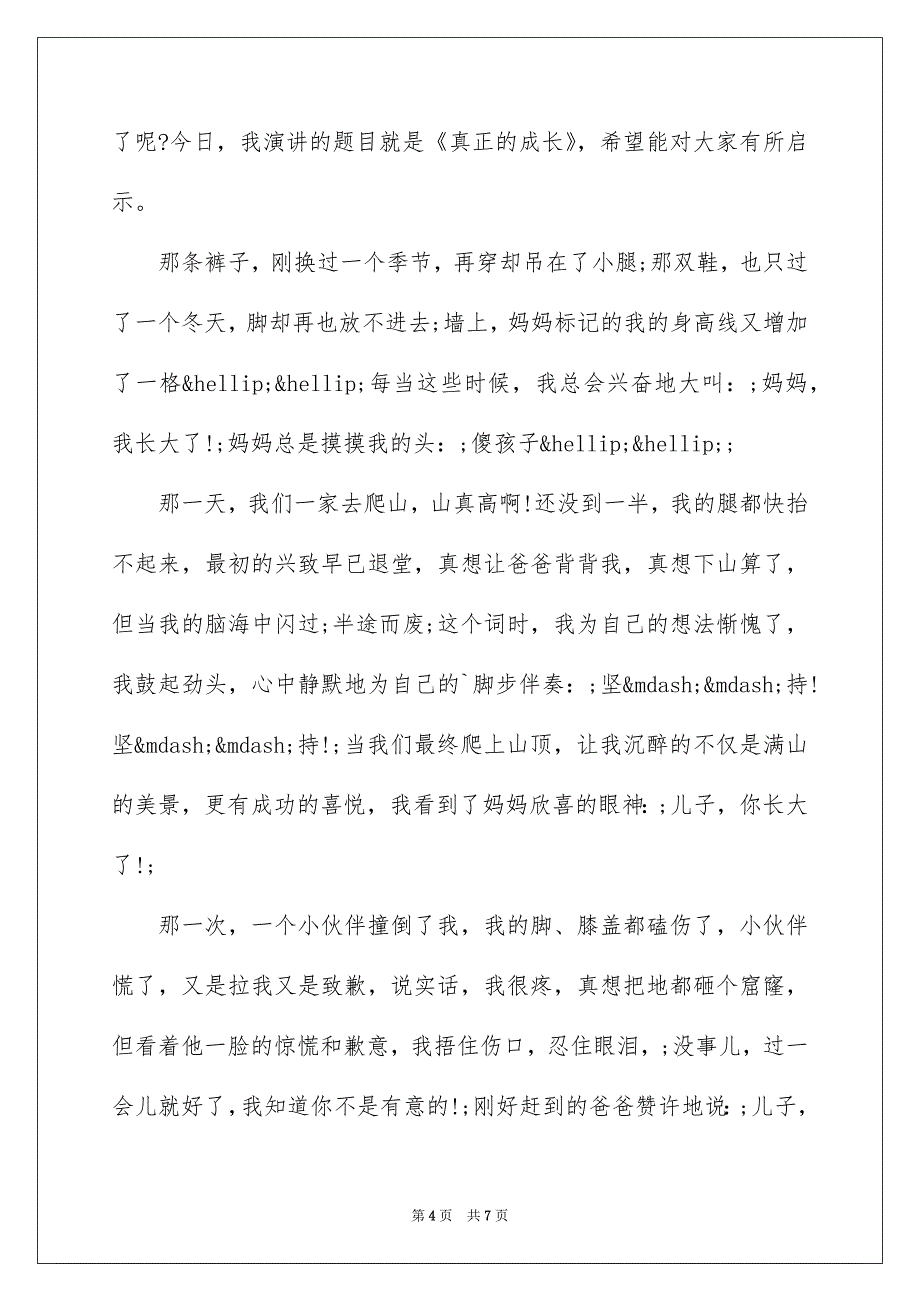 了呢?今日，我演讲的题目就是《真正的成长》，希望能对大家有所启
示。
那条裤子，刚换过一个季节，再穿却吊在了小腿;那双鞋，也只过
了一个冬天，脚却再也放不进去;墙上，妈妈标记的我的身高线又增加
了一格&hellip;&hellip;每当这些时候，我总会兴奋地大叫：;妈妈，
我长大了!;妈妈总是摸摸我的头：;傻孩子&hellip;&hellip;;
那一天，我们一家去爬山，山真高啊!还没到一半，我的腿都快抬
不起来，最初的兴致早已退堂，真想让爸爸背背我，真想下山算了，
但当我的脑海中闪过;半途而废;这个词时，我为自己的想法惭愧了，
我鼓起劲头，心中静默地为自己的`脚步伴奏：;坚&mdash;&mdash;持!
坚&mdash;&mdash;持!;当我们最终爬上山顶，让我沉醉的不仅是满山
的美景，更有成功的喜悦，我看到了妈妈欣喜的眼神：;儿子，你长大
了!;
那一次，一个小伙伴撞倒了我，我的脚、膝盖都磕伤了，小伙伴
慌了，又是拉我又是致歉，说实话，我很疼，真想把地都砸个窟窿，
但看着他一脸的惊慌和歉意，我捂住伤口，忍住眼泪，;没事儿，过一
会儿就好了，我知道你不是有意的!;刚好赶到的爸爸赞许地说：;儿子，
第4页 共7页